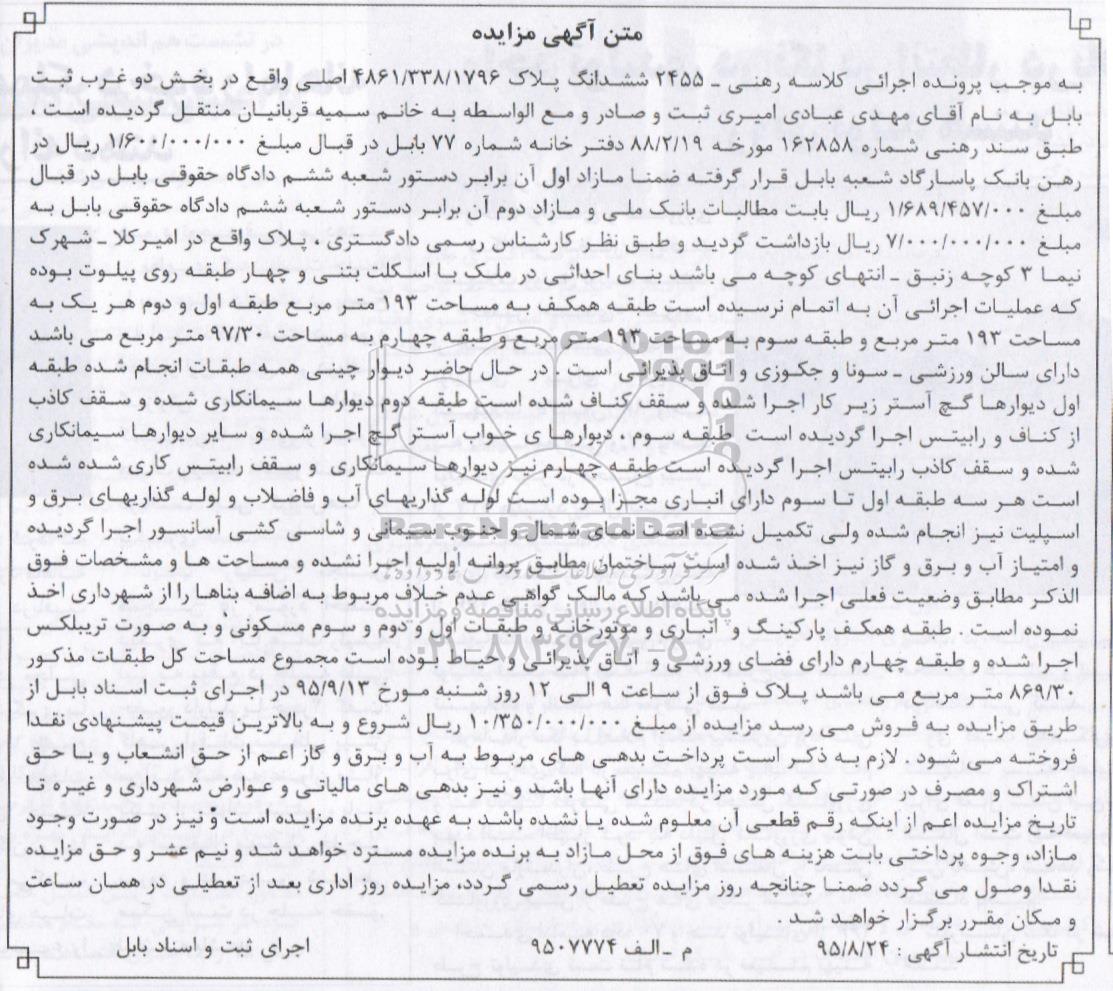 متن آگهی مزایده
به موجب پرونده اجرائی کلاسه رهنی ـ ۲۴۵۵ ششدانگ پلاک ۴۸۶۱/۳۳۸/۱۷۹۶ اصلی واقع در بخش دو غرب ثبت
بابل به نام آقای مهدی عبادی امیری ثبت و صادر و مع الواسطه به خانم سمیه قربانیان منتقل گردیده است .
طبق سند رهنی شماره ۱۶۲۸۵۸ مورخه ۸۸/۲/۱۹ دفتر خانه شماره ۷۷ بابل در قبال مبلغ ۱/۶۰۰/۰۰۰/۰۰۰ ریال در
رهن بانک پاسارگاد شعبه بابل قرار گرفته ضمنا مازاد اول آن برابر دستور شعبه ششم دادگاه حقوقی بابل در قبال
مبلغ ۱/۶۸۹/۴۵۷/۰۰۰ ریال بابت مطالبات بانک ملی و مازاد دوم آن برابر دستور شعبه ششم دادگاه حقوقی بابل به
مبلغ ۷/۰۰۰/۰۰۰/۰۰۰ ریال بازداشت گردید و طبق نظر کارشناس رسمی دادگستری ، پلاک واقع در امیرکلا ـ شهرک
نیما ۳ کوچه زنبق ـ انتهای کوچه می باشد بنای احداثی در ملک با اسکلت بتنی و چهار طبقه روی پیلوت بوده
که عملیات اجرائی آن به اتمام نرسیده است طبقه همکف به مساحت ۱۹۳ متر مربع طبقه اول و دوم هر یک به
مساحت ۱۹۳ متر مربع و طبقه سوم به مساحت ۱۹۳ متر مربع و طبقه چهارم به مساحت ۹۷/۳۰ متر مربع می باشد
دارای سالن ورزشی ـ سونا و جکوزی و اتاق پذیرائی است . در حال حاضر دیوار چینی همه طبقات انجام شده طبقه
اول دیوارها گچ آستر زیر کار اجرا شده و سقف کناف شده است طبقه دوم دیوارها سیمانکاری شده و سقف کاذب
از کناف و رابیتس اجرا گردیده است طبقه سوم . دیوارها ی خواب آستر گچ اجرا شده و سایر دیوارها سیمانکاری
شده و سقف کاذب رابیتس اجرا گردیده است طبقه چهارم نیز دیوارها سیمانکاری و سقف رابیتس کاری شده شده
است هر سه طبقه اول تا سوم دارای انباری مجزا بوده است لوله گذاریهای آب و فاضلاب و لوله گذاریهای برق و
اسپلیت نیز انجام شده ولی تکمیل نشده است نمای شمال و جنوب سیمانی و شاسی کشی آسانسور اجرا گردیده
و امتیاز آب و برق و گاز نیز اخذ شده است ساختمان مطابق پروانه اولیه اجرا نشده و مساحت ها و مشخصات فوق
الذکر مطابق وضعیت فعلی اجرا شده می باشد که مالک گواهی عدم خلاف مربوط به اضافه بناها را از شهرداری اخذ
نموده است . طبقه همکف پارکینگ و انباری و موتور خانه و طبقات اول و دوم و سوم مسکونی و به صورت تریبلکس
اجرا شده و طبقه چهارم دارای فضای ورزشی و اتاق پذیرائی و حیاط بوده است مجموع مساحت کل طبقات مذکور
۸۶۹/۳۰ متر مربع می باشد پلاک فوق از ساعت ۹ الی ۱۲ روز شنبه مورخ ۹۵/۹/۱۳ در اجرای ثبت اسناد بابل از
طریق مزایده به فروش می رسد مزایده از مبلغ ۱۰/۳۵۰/۰۰۰/۰۰۰ ریال شروع و به بالاترین قیمت پیشنهادی نقدا
فروخته می شود . لازم به ذکر است پرداخت بدهی های مربوط به آب و برق و گاز اعم از حق انشعاب و یا حق
اشتراک و مصرف در صورتی که مورد مزایده دارای آنها باشد و نیز بدهی های مالیاتی و عوارض شهرداری و غیره تا
تاریخ مزایده اعم از اینکه رقم قطعی آن معلوم شده یا نشده باشد به عهده برنده مزایده است و نیز در صورت وجود
مازاد، وجوه پرداختی بابت هزینه های فوق از محل مازاد به برنده مزایده مسترد خواهد شد و نیم عشر و حق مزایده
نقدا وصول می گردد ضمنا چنانچه روز مزایده تعطیل رسمی گردد، مزایده روز اداری بعد از تعطیلی در همان ساعت
و مکان مقرر برگزار خواهد شد .
تاریخ انتشار آگهی : ۹۵/۸/۲۴ م ـ الف ۹۵۰۷۷۷۴ اجرای ثبت و اسناد بابل
ParsNamadData
پایگاه اطلاع رسانی مناقصه و مزایده
۰۲۱-۸۸۳۴۹۶۷۰-۵